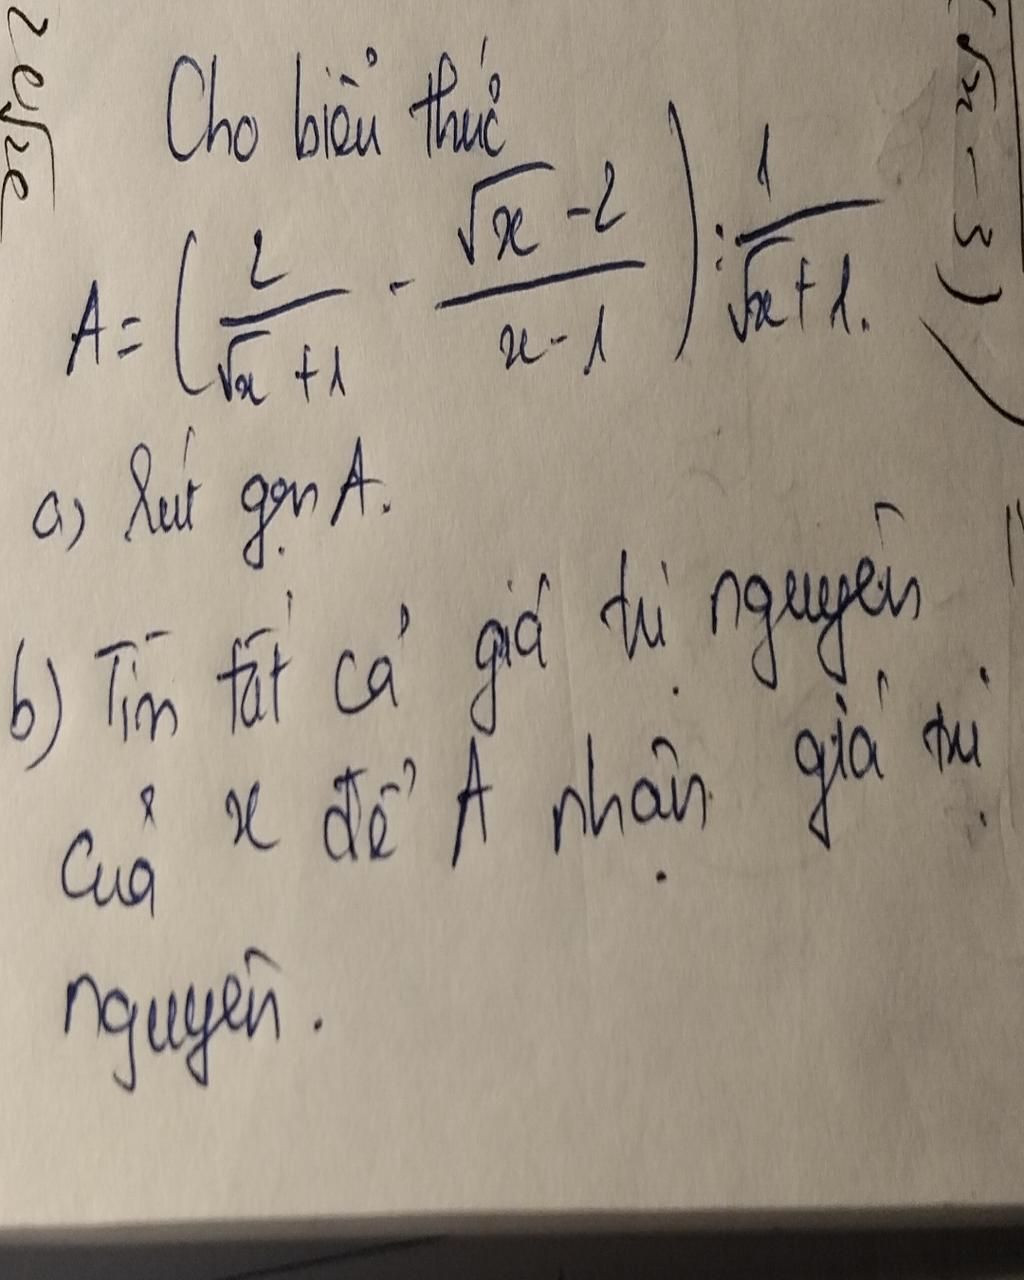 Cho biểu thức
A = ( 2/(√x + 1) - (√x - 2)/(x - 1) ) : 1/(√x + 1).
a) Rút gọn A.
b) Tìm tất cả giá trị nguyên
của x để A nhận giá trị
nguyên.
√x - 3)